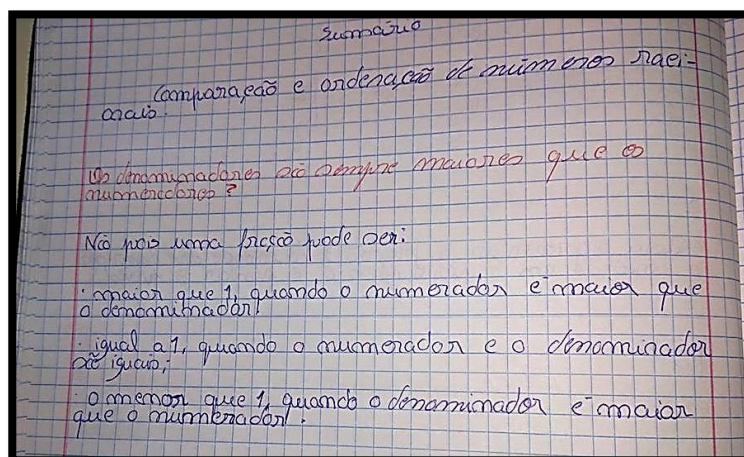 Sumário
Comparação e ordenação de números raci-
onais.
Os denominadores são sempre maiores que os
numeradores?
Não pois uma fração pode ser:
· maior que 1, quando o numerador é maior que
o denominador;
· igual a 1, quando o numerador e o denominador
são iguais;
· o menor que 1, quando o denominador é maior
que o numerador.